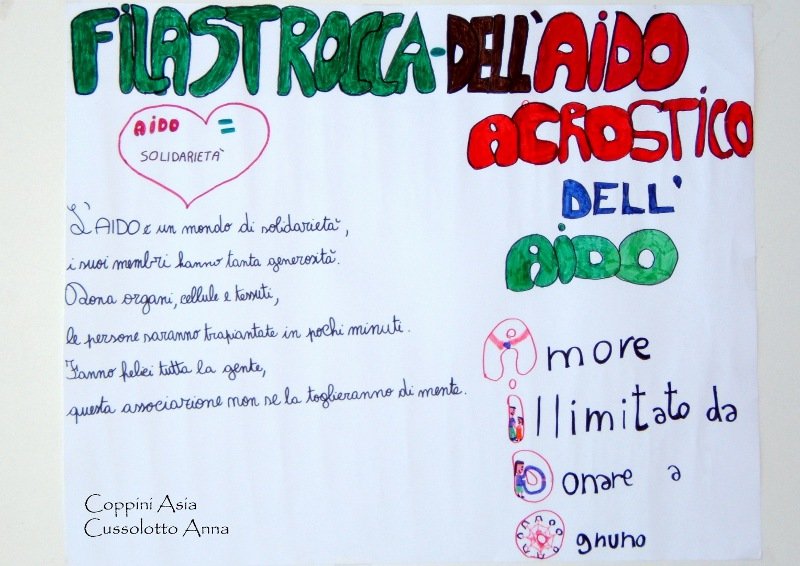 FILASTROCCA-DELL'AIDO
AIDO =
SOLIDARIETÀ
L'AIDO è un mondo di solidarietà,
i suoi membri hanno tanta generosità.
Dona organi, cellule e tessuti,
le persone saranno trapiantate in pochi minuti.
Fanno felici tutta la gente,
questa associazione non se la toglieranno di mente.
Coppini Asia
Cussolotto Anna
ACROSTICO
DELL'
AIDO
Amore
illimitato da
Donare a
Ognuno